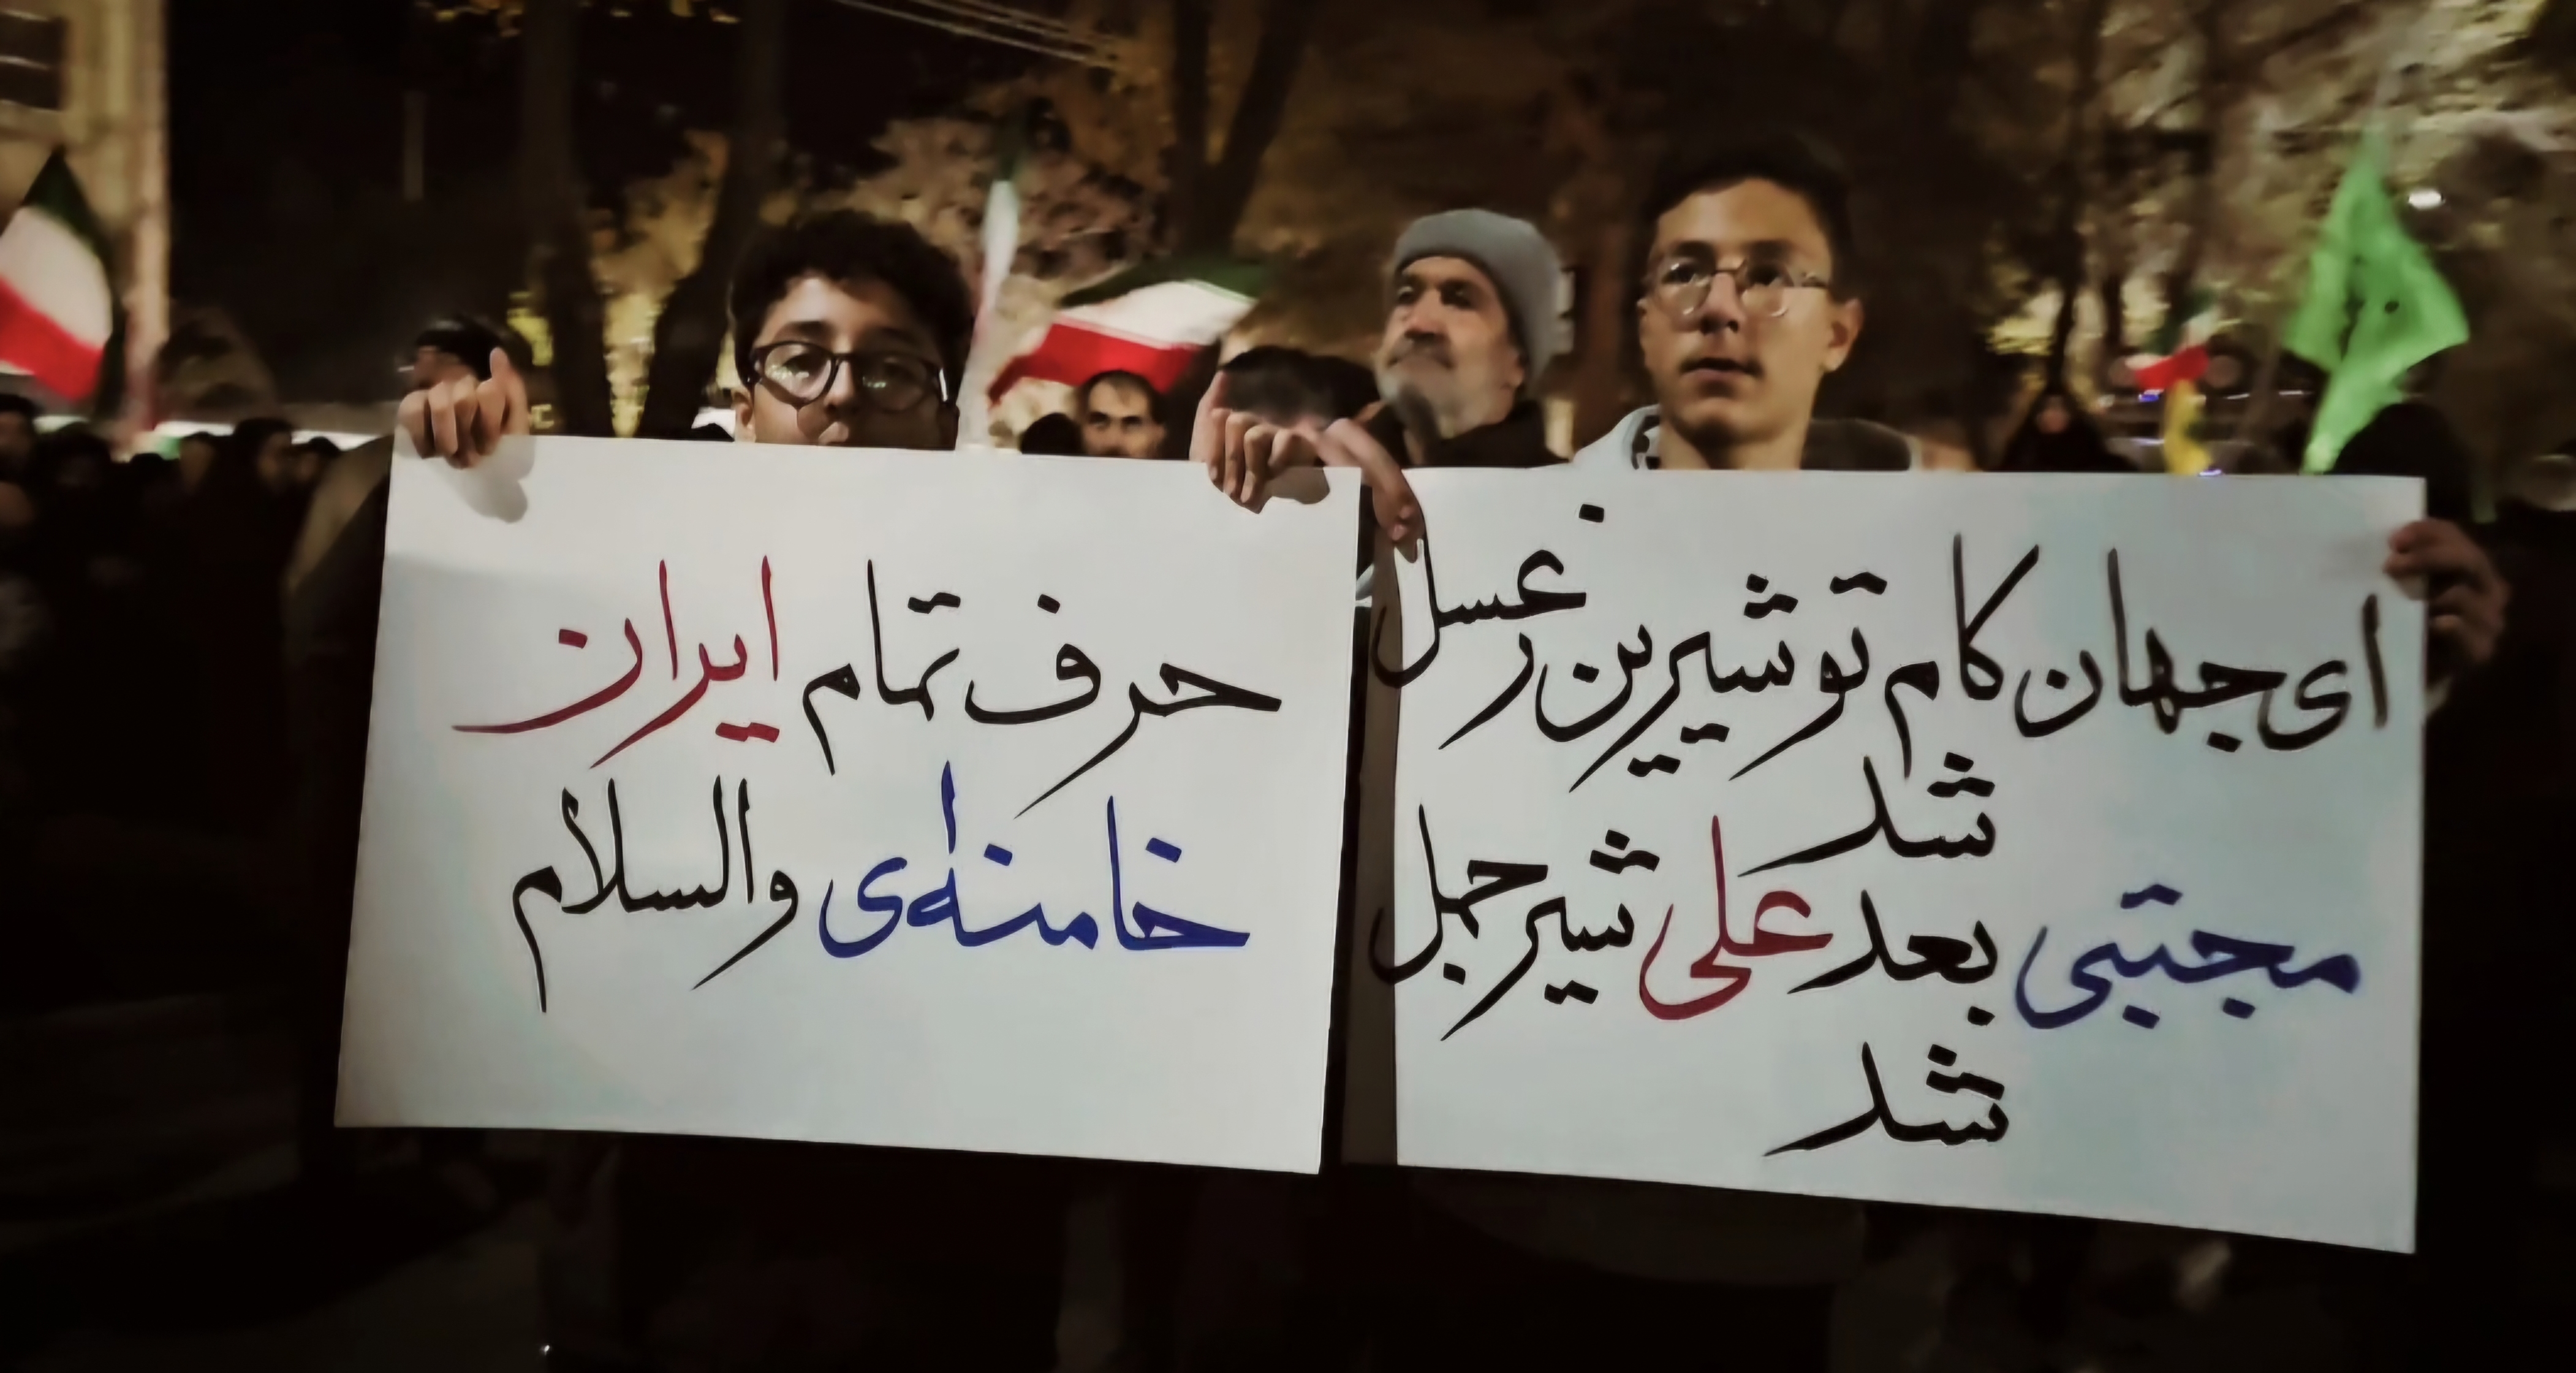 ای جهان کام تو شیرین ز غسل
شد
مجتبی بعد علی شیر جمل
شد
حرف تمام ایران
خامنه‌ای والسلام